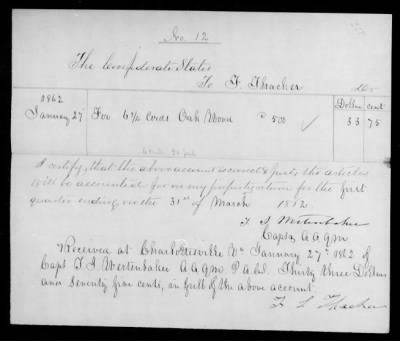 No. 12
The Confederate States
To F. Thacker Dr
Dollars cents
1862
January 27 For 6¾ Cords Oak Wood @ 5.00 33 75
I certify, that the above account is correct & just; the articles
will be accounted for on my property return for the first
quarter ending on the 31st of March 1862
T. J. Wertenbaker
Capt & A A Q M
Received at Charlottesville Va January 27th 1862 of
Capt T. J. Wertenbaker A A Q M P.A.C.S. Thirty three Dollars
and Seventy five cents, in full of the above account
F L Thacker